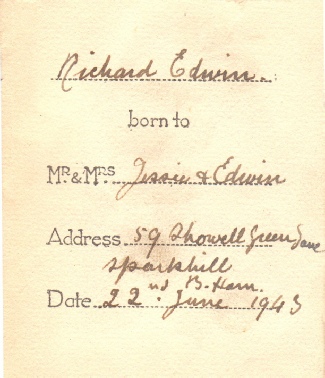 Richard Edwin.
born to
Mr. & Mrs Jessie & Edwin
Address 59 Showell Green Lane
Sparkhill
B-Ham.
Date 22nd. June 1943